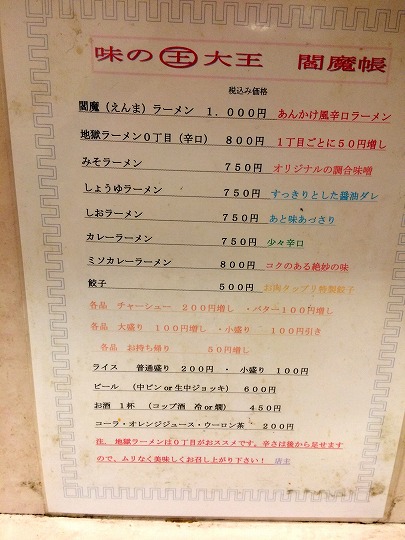 味の王大王　閻魔帳
税込み価格
閻魔（えんま）ラーメン　１．０００円　あんかけ風辛口ラーメン
地獄ラーメン０丁目（辛口）　８００円　１丁目ごとに５０円増し
みそラーメン　７５０円　オリジナルの調合味噌
しょうゆラーメン　７５０円　すっきりとした醤油ダレ
しおラーメン　７５０円　あと味あっさり
カレーラーメン　７５０円　少々辛口
ミソカレーラーメン　８００円　コクのある絶妙の味
餃子　５００円　お肉タップリ特製餃子
各品　チャーシュー　２００円増し　・バター１００円増し
各品　大盛り　１００円増し　・小盛り　１００円引き
各品　お持ち帰り　５０円増し
ライス　普通盛り　２００円　・　小盛り　１００円
ビール　（中ビン or 生中ジョッキ）　６００円
お酒　１杯　（コップ酒　冷 or 燗）　４５０円
コーラ・オレンジジュース・ウーロン茶　２００円
注、地獄ラーメンは０丁目がおススメです。辛さは後から足せます
ので、ムリなく美味しくお召し上がり下さい！　店主